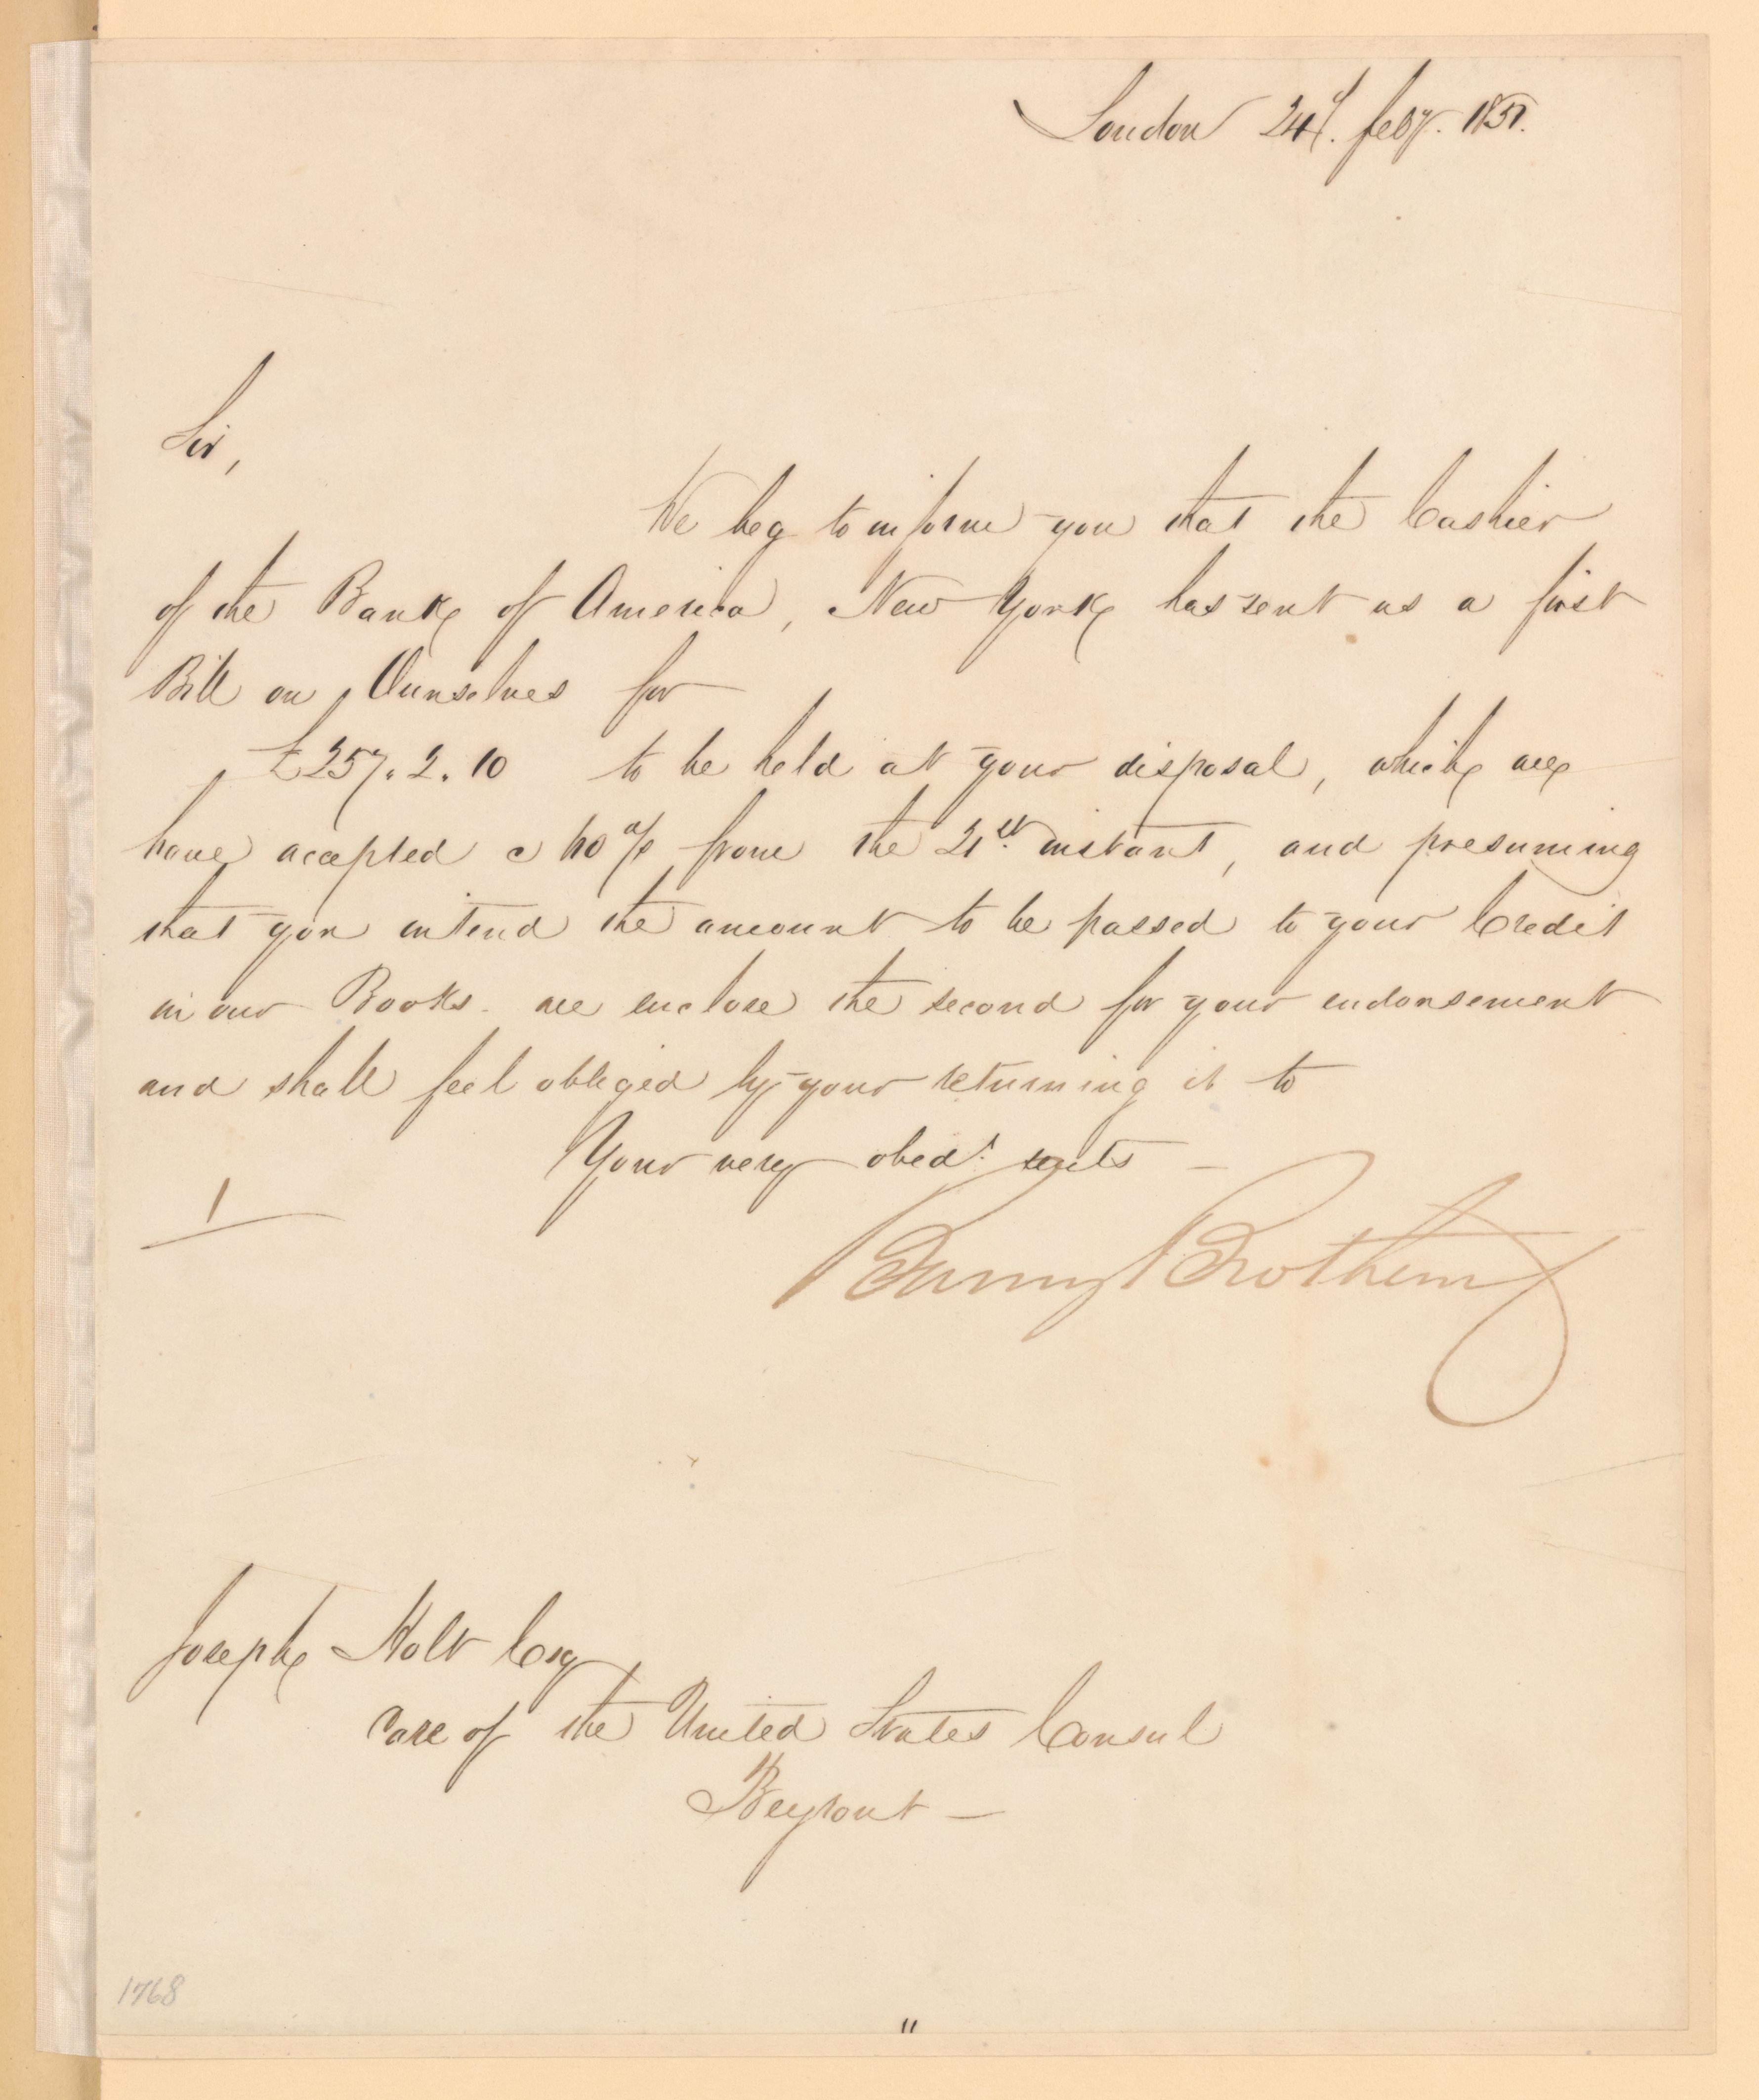 London 24th. feby. 1851.
Sir,
We beg to inform you that the Cashier
of the Bank of America, New York has sent us a first
Bill on Ourselves for
£257.2.10 to be held at your disposal, which we
have accepted @ 60 d/s from the 21st. instant, and presuming
that you intend the amount to be passed to your Credit
in our Books. we enclose the second for your endorsement
and shall feel obliged by your returning it to
Your very obedt. servts —
1
Baring Brothers
Joseph Holt Esq
Care of the United States Consul
Beyrout —
1768
"